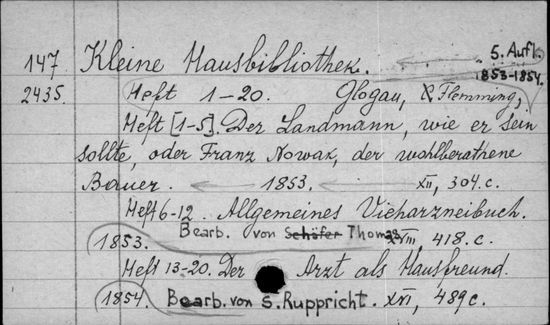 147 Kleine Hausbibliothek. 5. Aufl.
1853-1854.
2435. Heft 1-20. Glogau, C. Flemming,
Heft [1-5]. Der Landmann, wie er sein
sollte, oder Franz Nowak, der wohlberathene
Bauer. 1853. XII, 304.c.
Heft 6-12. Allgemeines Viehharzneibuch.
Bearb. von Schäfer Thomas
1853. XVIII, 418.c.
Heft 13-20. Der Arzt als Hausfreund.
1854. Bearb. von S. Ruppricht. XVI, 489c.